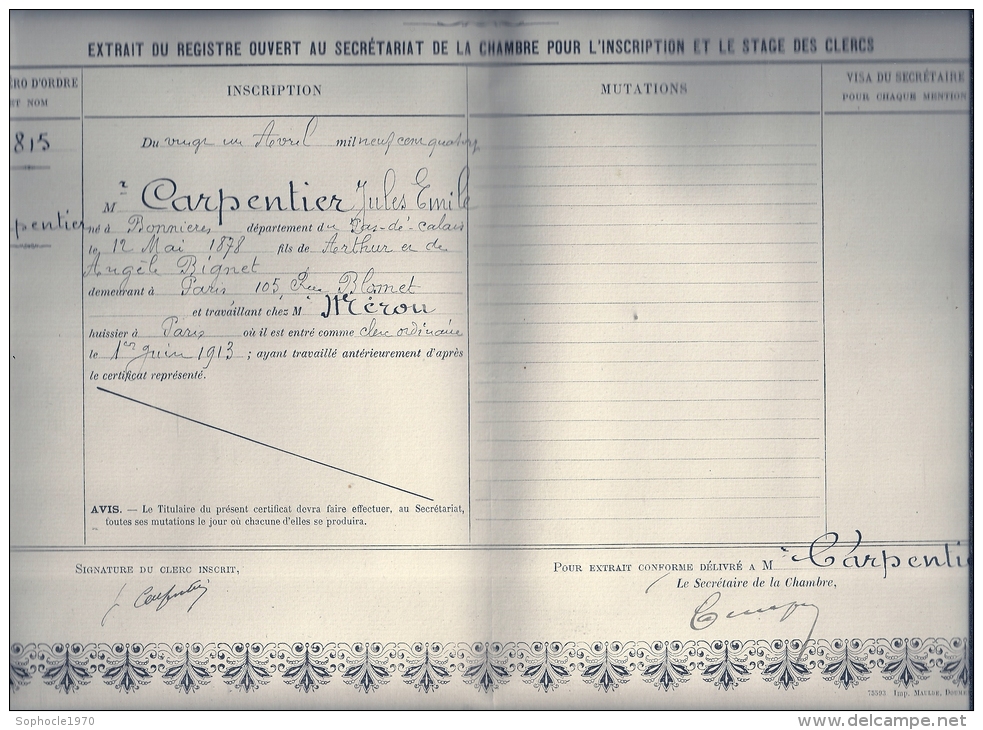 EXTRAIT DU REGISTRE OUVERT AU SECRÉTARIAT DE LA CHAMBRE POUR L'INSCRIPTION ET LE STAGE DES CLERCS
ÉRO D'ORDRE
ET NOM
INSCRIPTION
MUTATIONS
VISA DU SECRÉTAIRE
POUR CHAQUE MENTION
815
Du vingt un Avril mil neuf cent quatorz
pentier
Mr Carpentier Jules Emile
né à Bonnieres département du Pas-de-Calais
le 12 Mai 1878 fils de Arthur et de
Angèle Bignet
demeurant à Paris 105 Rue Blomet
et travaillant chez Me Mérou
huissier à Paris où il est entré comme clerc ordinaire
le 1er Juin 1913 ; ayant travaillé antérieurement d'après
le certificat représenté.
AVIS. — Le Titulaire du présent certificat devra faire effectuer, au Secrétariat,
toutes ses mutations le jour où chacune d'elles se produira.
SIGNATURE DU CLERC INSCRIT,
J Carpentier
POUR EXTRAIT CONFORME DÉLIVRÉ A Mr Carpentie
Le Secrétaire de la Chambre,
75593 Imp. MAULDE, DOUME
Sophocle1970
delcampe.net